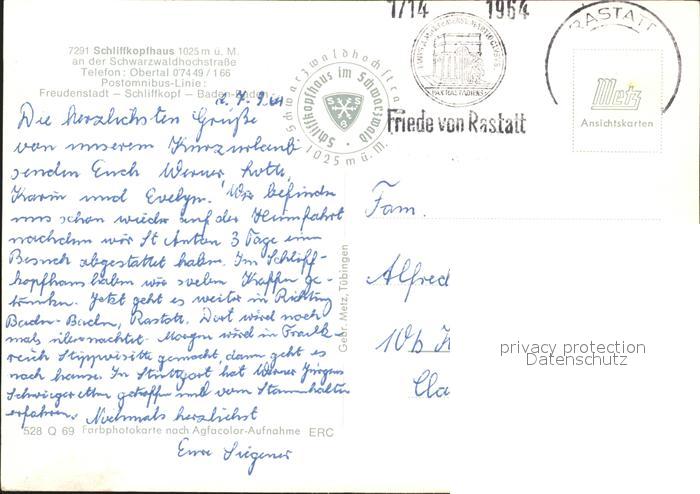 1714 1964
RASTATT
7291 Schliffkopfhaus 1025 m ü. M.
an der Schwarzwaldhochstraße
Telefon: Obertal 07449/166
Postomnibus-Linie:
Freudenstadt – Schliffkopf – Baden-Baden
Schwarzwaldhochstraße
Schliffkopfhaus im Schwarzwald
1025 m ü. M.
Friede von Rastatt
Metz
Ansichtskarten
Die herzlichsten Grüße
von unserem Kurzurlaub
senden Euch Werner, Lotte,
Karin und Evelyn. Wir befinden
uns schon wieder auf der Heimfahrt
nachdem wir St Anton 3 Tage einen
Besuch abgestattet haben. Im Schliff-
kopfhaus haben wir soeben Kaffee ge-
trunken. Jetzt geht es weiter in Richtung
Baden-Baden, Rastatt. Dort wird noch
mals übernachtet. Morgen wird in Frank-
reich Stippvisite gemacht, dann geht es
nach hause. In Stuttgart hat Werner Jürgens
Schwiegereltern getroffen und vom Stammhalter
erfahren. Nochmals herzlichst
Eure Siegener
Fam.
Alfred
10b
Cla
Gebr. Metz, Tübingen
528 Q 69 Farbphotokarte nach Agfacolor-Aufnahme ERC
privacy protection
Datenschutz